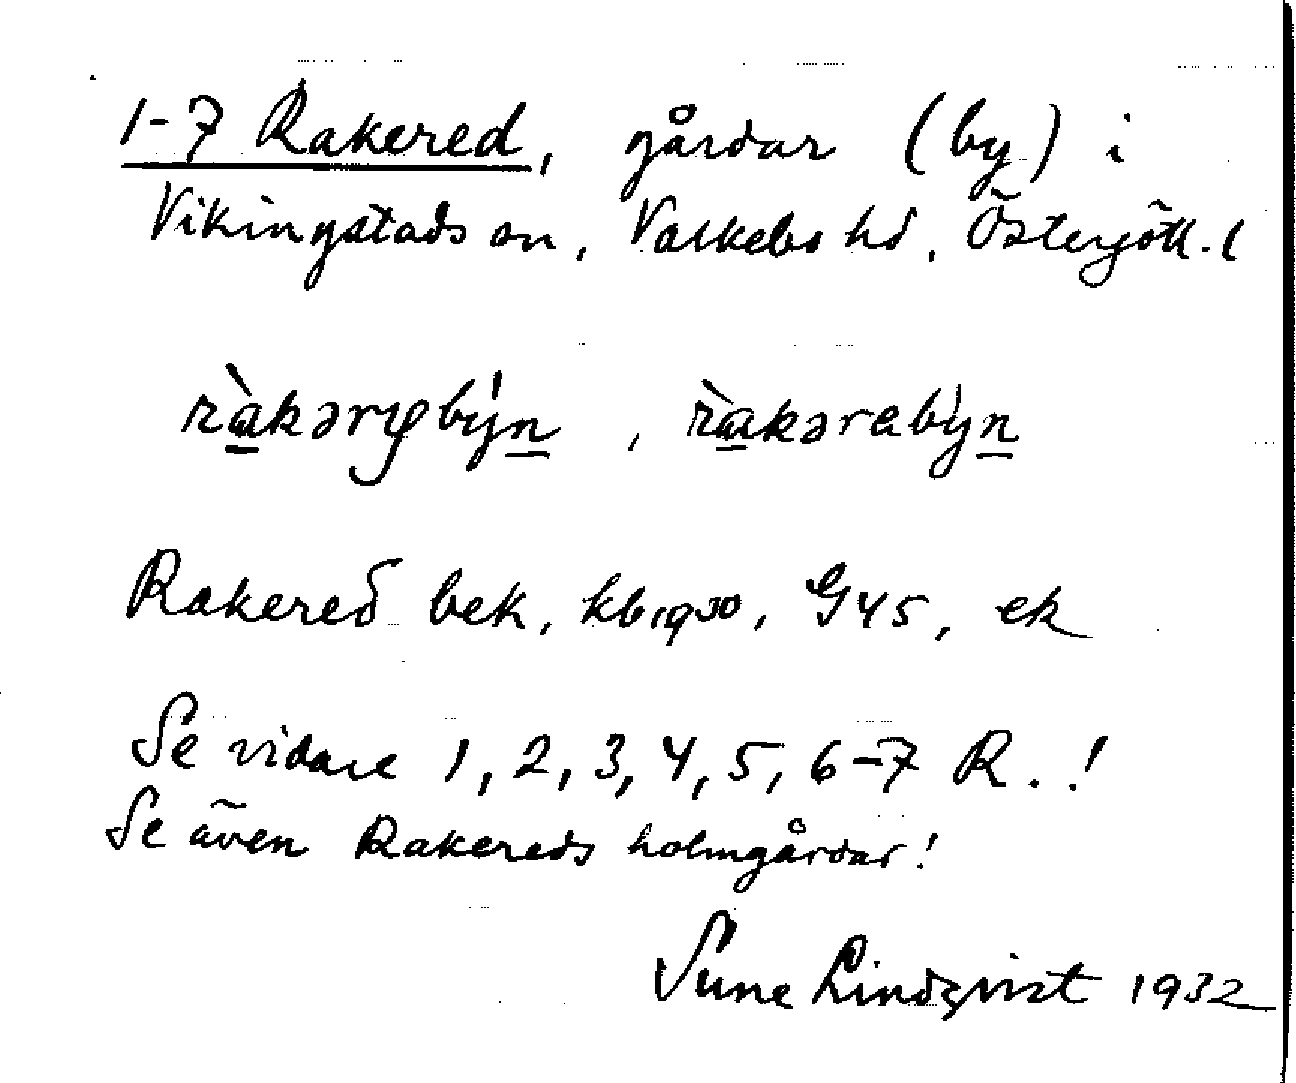 1-7 Rakered, gårdar (by) i
Vikingstads sn, Valkebo hd, Östergötl. l
ràkərybýn, ràkərabýn
Rakered bek, kb1930, G45, ek
Se vidare 1, 2, 3, 4, 5, 6-7 R. !
Se även Rakereds holmgårdar!
Sune Lindqvist 1932